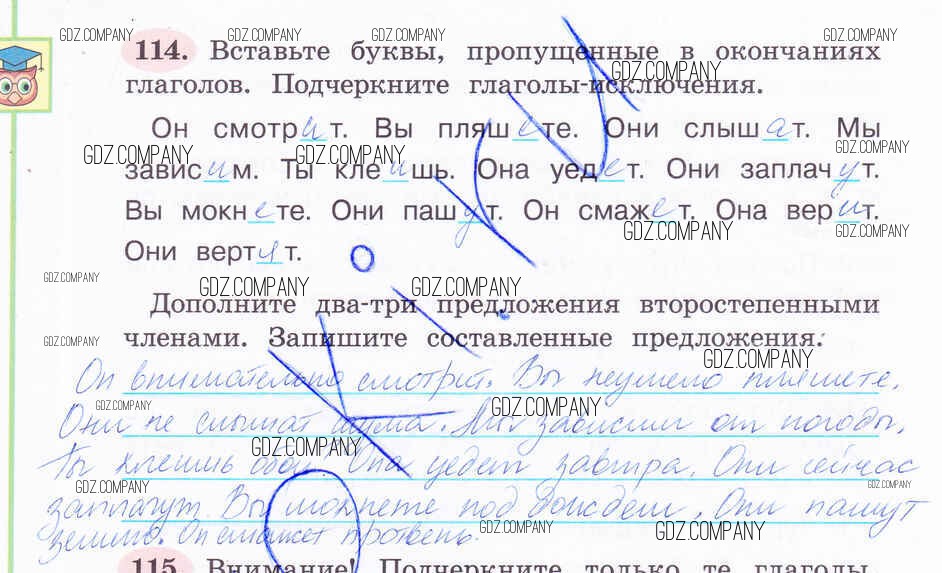 GDZ.COMPANY GDZ.COMPANY GDZ.COMPANY GDZ.COMPANY
114. Вставьте буквы, пропущенные в окончаниях
GDZ.COMPANY
глаголов. Подчеркните глаголы-исключения.
Он смотрит. Вы пляшете. Они слышат. Мы
GDZ.COMPANY GDZ.COMPANY GDZ.COMPANY
зависим. Ты клеишь. Она уедет. Они заплачут.
Вы мокнете. Они пашут. Он смажет. Она верит.
GDZ.COMPANY GDZ.COMPANY
Они вертят.
GDZ.COMPANY GDZ.COMPANY GDZ.COMPANY
Дополните два-три предложения второстепенными
членами. Запишите составленные предложения.
GDZ.COMPANY GDZ.COMPANY
Он внимательно смотрит. Вы неумело пляшете.
GDZ.COMPANY GDZ.COMPANY
Они не слышат шума. Мы зависим от погоды.
GDZ.COMPANY
Ты клеишь обои. Она уедет завтра. Они сейчас
GDZ.COMPANY GDZ.COMPANY
заплачут. Вы мокнете под дождем. Они пашут
GDZ.COMPANY GDZ.COMPANY
землю. Он смажет противень.
115. Внимание! Подчеркните только те глаголы,